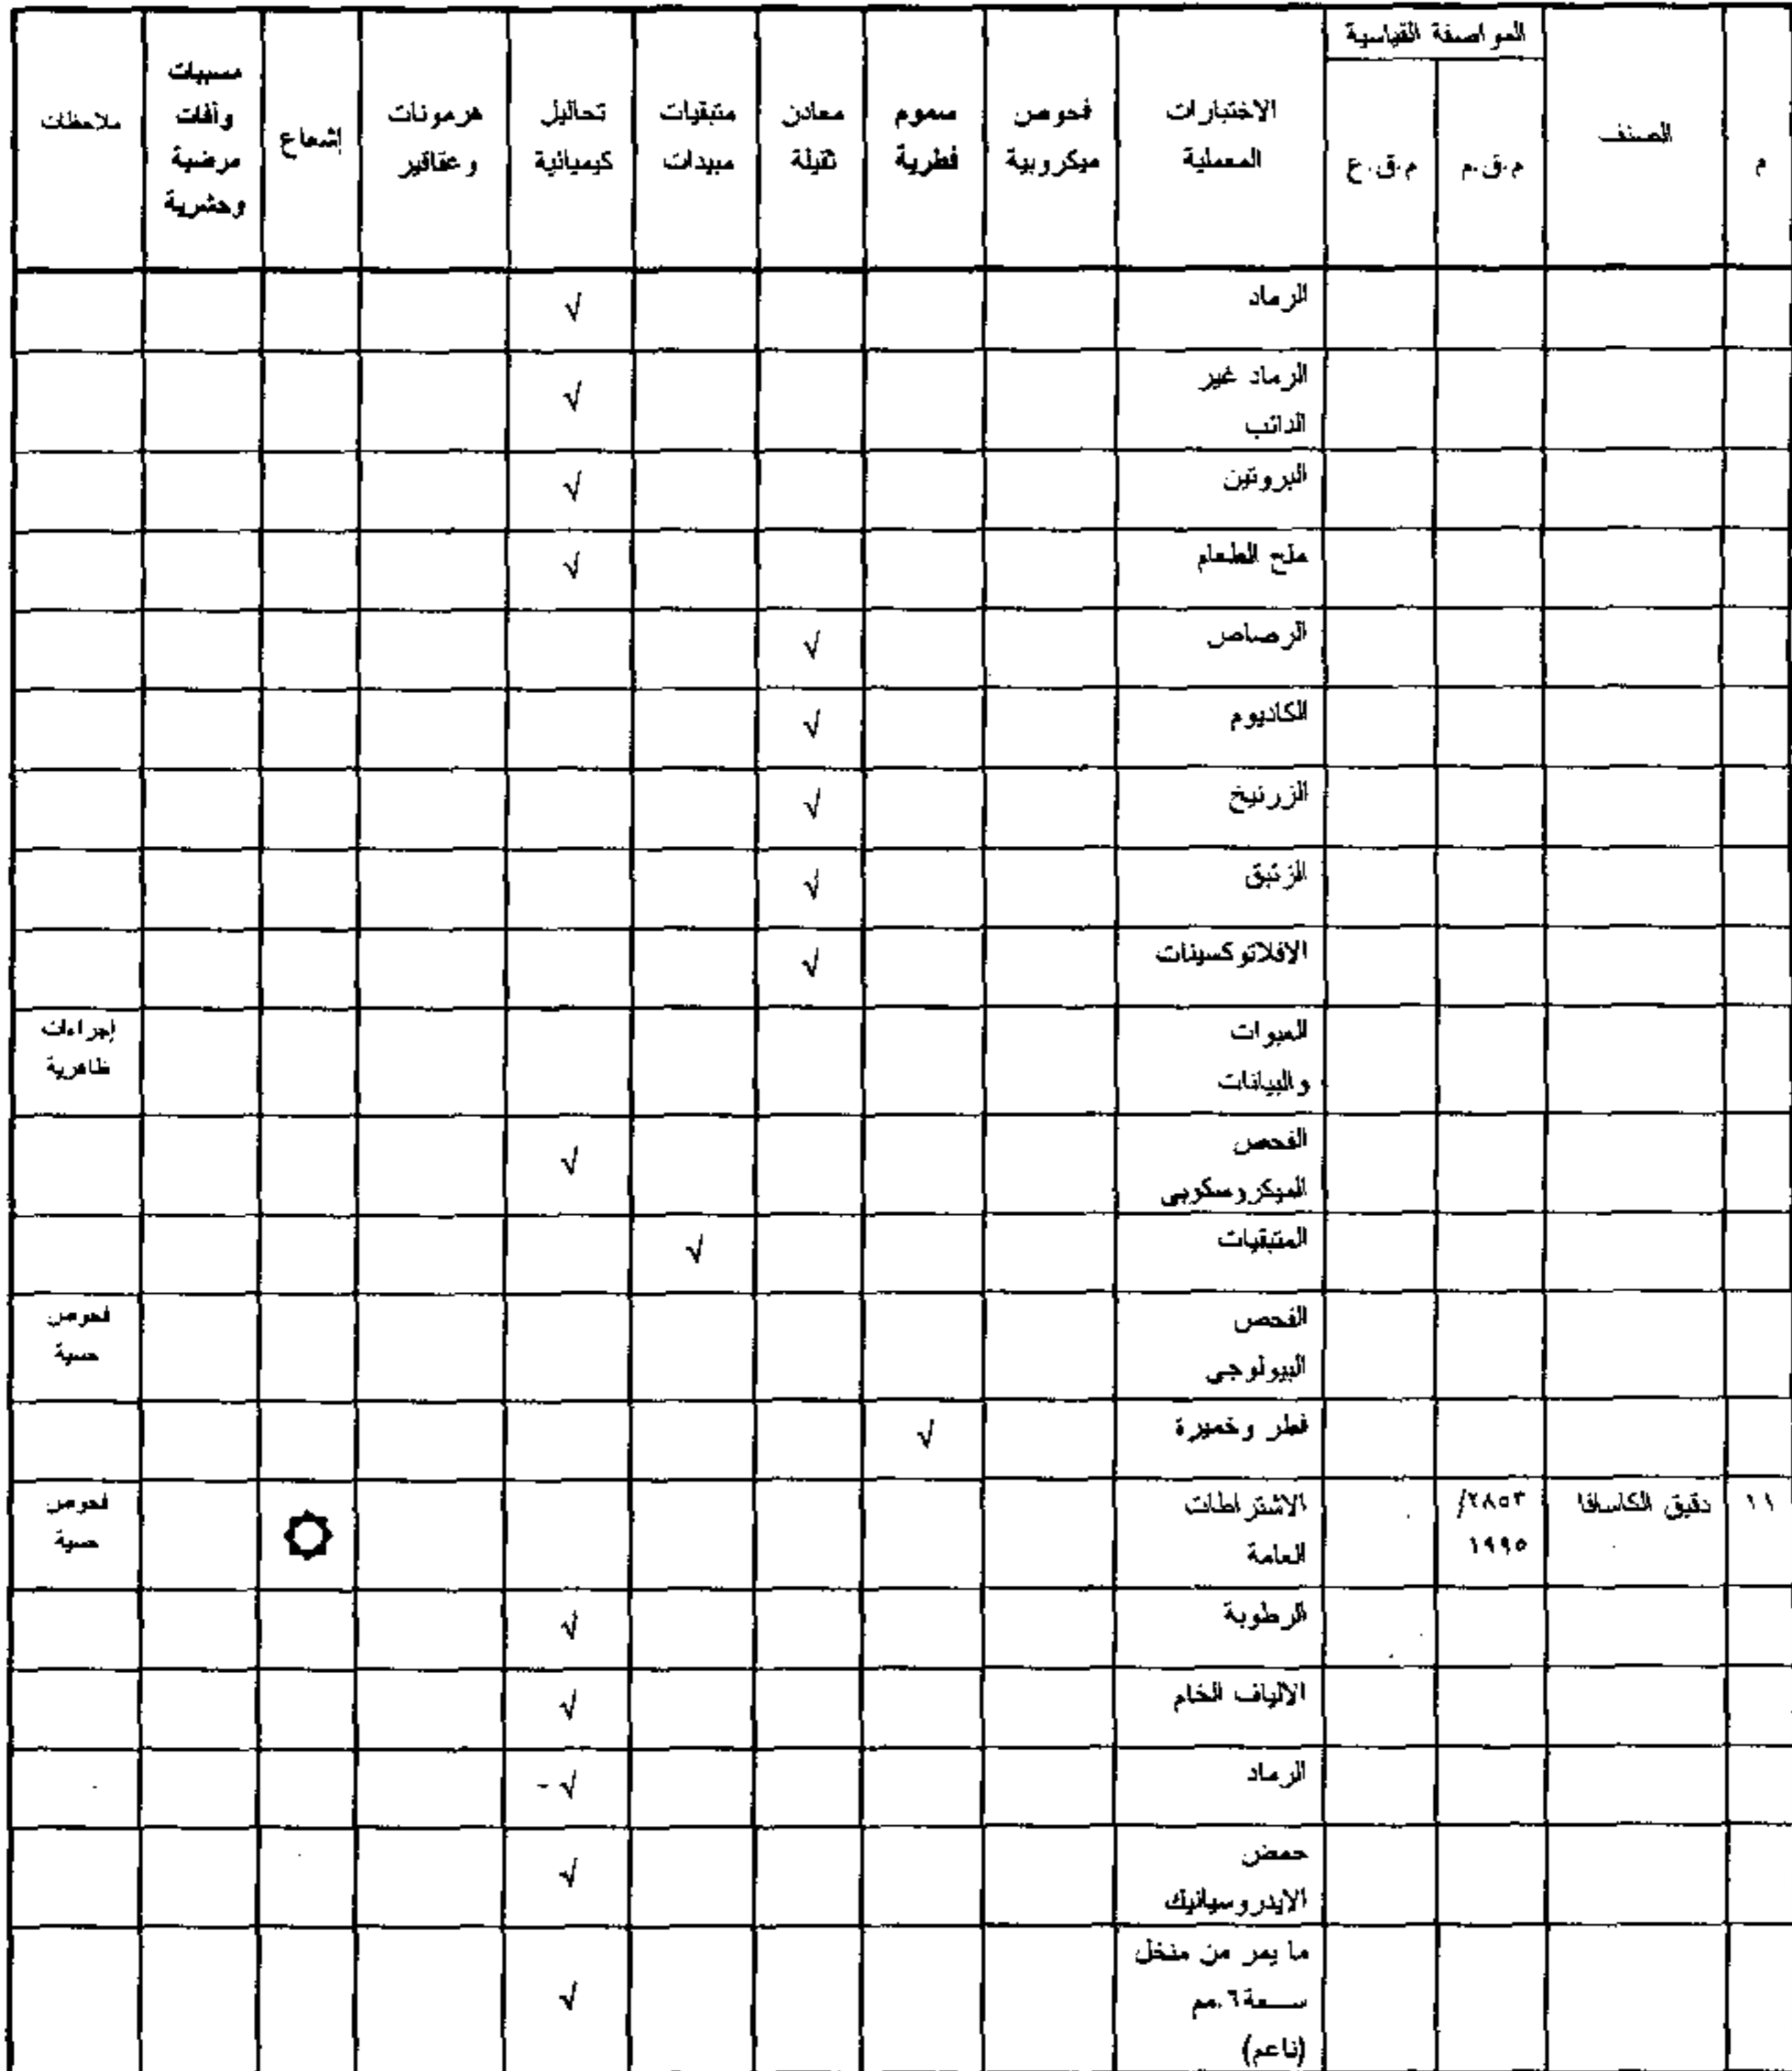 م
الصنف
المواصفة القياسية
م.ق.م
م.ق.ع
الاختبارات
المعملية
فحوص
ميكروبية
سموم
فطرية
معادن
ثقيلة
متبقيات
مبيدات
تحاليل
كيميائية
هرمونات
وعقاقير
إشعاع
مسببات
وأفات
مرضية
وحشرية
ملاحظات
الرماد
√
الرماد غير
الذائب
√
البروتين
√
ملح الطعام
√
الرصاص
√
الكاديوم
√
الزرنيخ
√
الزئبق
√
الافلاتوكسينات
√
العبوات
والبيانات
إجراءات
ظاهرية
الفحص
الميكروسكوبى
√
المتبقيات
√
الفحص
البيولوجى
فحوص
حسية
فطر وخميرة
√
١١
دقيق الكاسافا
٢٨٥٣/
١٩٩٥
الاشتراطات
العامة
فحوص
حسية
الرطوبة
√
الالياف الخام
√
الرماد
√
حمض
الايدروسيانيك
√
ما يمر من منخل
سعة٦.مم
(ناعم)
√